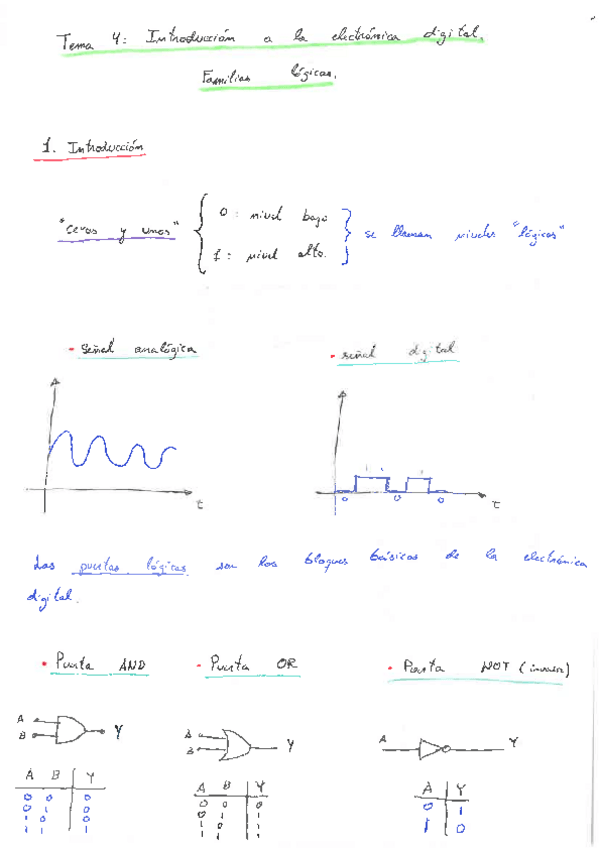 Tema 4: Introducción a la electrónica digital.
Familias lógicas.
1. Introducción
"ceros y unos"
0: nivel bajo
1: nivel alto.
se llaman niveles "lógicos"
• Señal analógica
• señal digital
t
1 1 1
0 0 0
t
Las puertas lógicas son los bloques básicos de la electrónica
digital.
• Puerta AND
• Puerta OR
• Puerta NOT (inversor)
A
B
Y
A
B
Y
A
Y
A B Y
0 0 0
0 1 0
1 0 0
1 1 1
A B Y
0 0 0
0 1 1
1 0 1
1 1 1
A Y
0 1
1 0